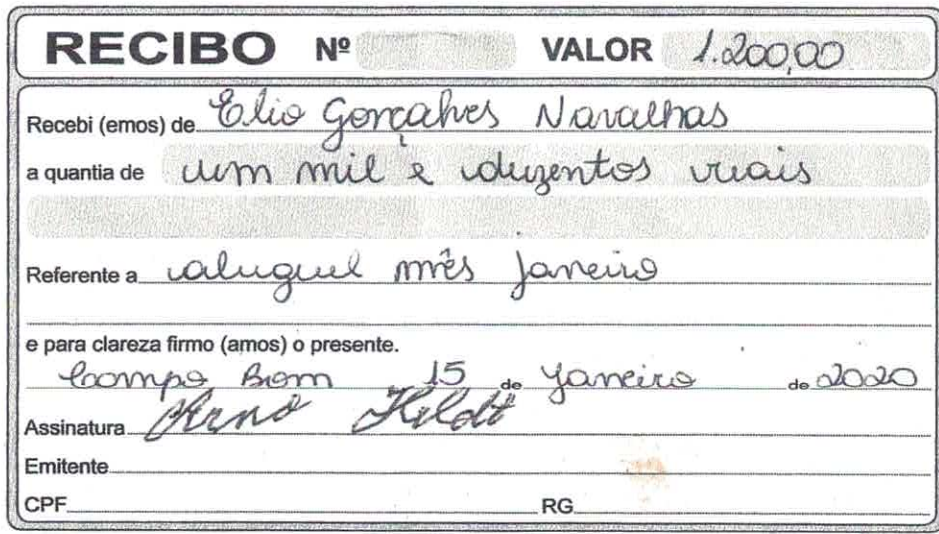 RECIBO Nº VALOR 1.200,00
Recebi (emos) de Elio Gonçalves Navalhas
a quantia de um mil e duzentos reais
Referente a aluguel mês Janeiro
e para clareza firmo (amos) o presente.
Campo Bom 15 de Janeiro de 2020
Assinatura Arno Heldt
Emitente
CPF RG